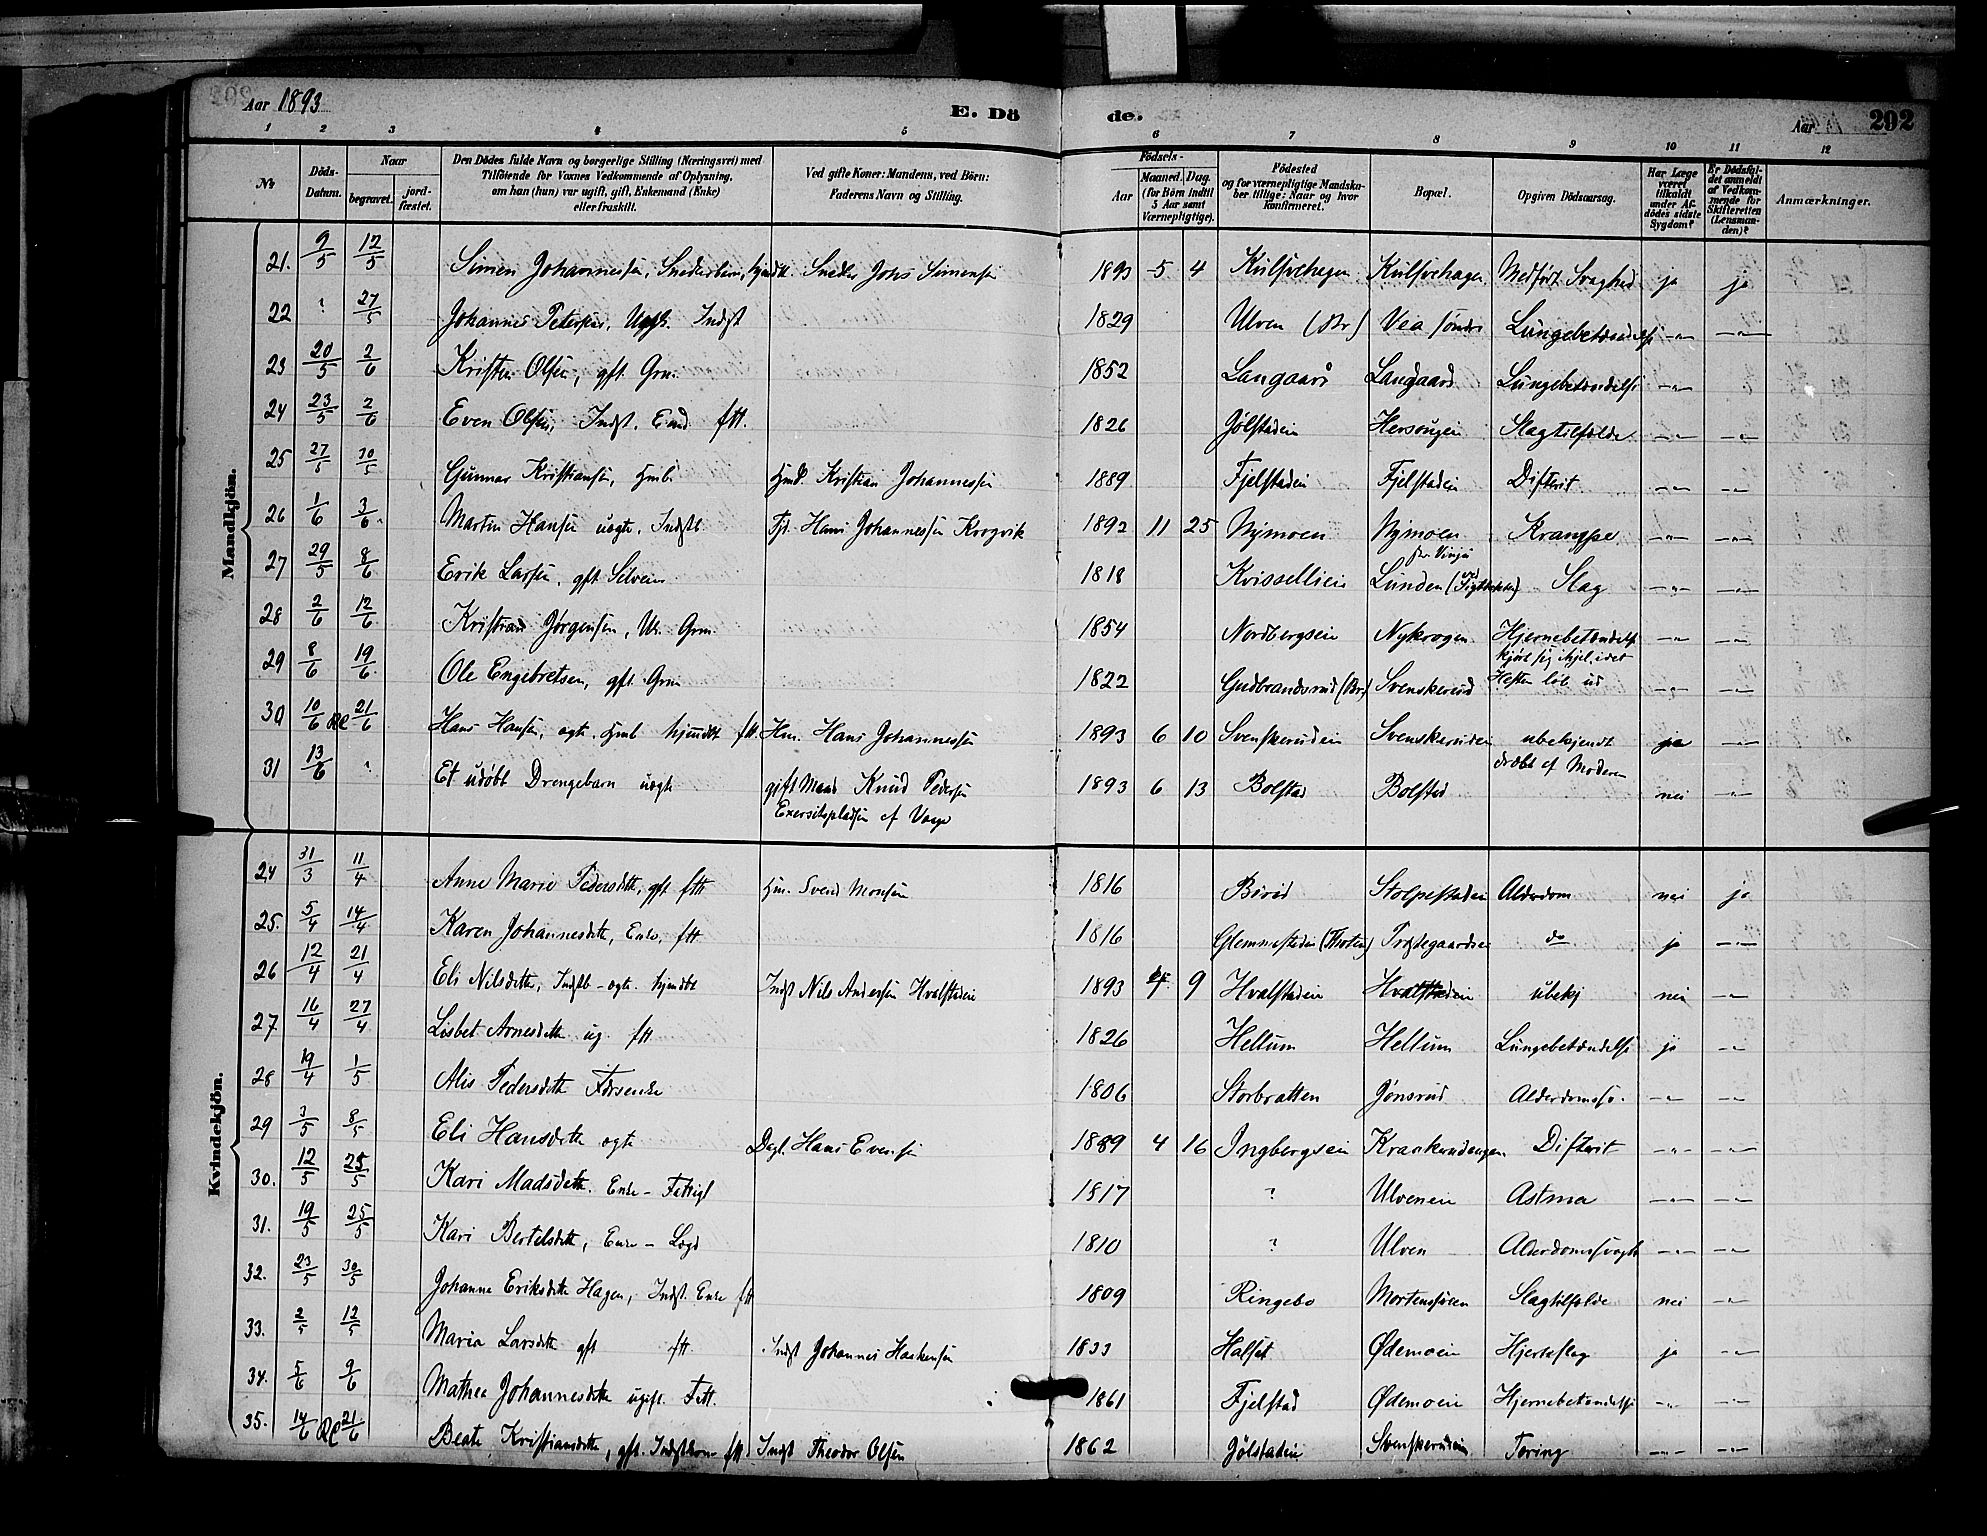 Aar 1893 E. Döde. Aar 292
1 2 3 4 5 6 7 8 9 10 11 12
No Döds-Datum. Naar begravet. jordfæstet. Den Dödes fulde Navn og borgerlige Stilling (Næringsvei) med Tilföiende for Voxnes Vedkommende af Oplysning, om han (hun) var ugift, gift, Enkemand (Enke) eller fraskilt. Ved gifte Koner: Mandens, ved Börn: Faderens Navn og Stilling. Födsels- Aar Maaned. Dag. (for Börn indtil 5 Aar samt Værnepligtige). Födested og for værnepligtige Mandskaber tillige: Naar og hvor konfirmeret. Bopæl. Opgiven Dödsaarsag. Har Læge været tilkaldt under Afdödes sidste Sygdom? Er Dödsfaldet anmeldt af Vedkommende for Skifteretten (Lensmanden)? Anmærkninger.
Mandkjön.
21. 9/5 12/5 Simen Johannessen, Snedkerbarn, hjmdt. Snedker Johs Simensen 1893 5 4 Kulsvehagen Kulsvehagen Medfødt Svaghed ja ja
22 ? 27/5 Johannes Petersen, Ugft. Indst 1829 Ulven (Br) Vea søndre Lungebetændelse -"- -"-
23 20/5 2/6 Kristen Olsen, gft. Grm. 1852 Langaard Langaard Lungebetændelse -"-
24 23/5 2/6 Even Olsen, Indst. Emd ftt. 1826 Jølstadein Hersougen Slagtilfælde -"- -"-
25 27/5 30/5 Gunnar Kristiansen, Hmb Hmd. Kristian Johannessen 1889 Fjelstadein Fjelstadein Difterit -"- -"-
26 1/6 3/6 Martin Hansen uægte, Indstb Fst. Hans Johannessen Krogvik 1892 11 25 Nymoen Nymoen Krampe -"- -"-
27 29/5 8/6 Erik Larsen, gft Selveier 1818 Kvisselliein Lunden Slag -"- -"-
28 2/6 12/6 Kristian Jørgensen, U. Grm. 1854 Nordbergseie Nykrogen Hjernebetændelse -"- -"-
29 8/6 19/6 Ole Engebretsen, gft Grm 1822 Gudbrandsrud (Br) Svenskerud kjørt sig ihjel, idet Hesten løb ud -"- -"-
30 10/6 21/6 Hans Hansen, ægte, Hmb hjmdbt ftt. Hm. Hans Johannessen 1893 6 10 Svenskerudein Svenskerudein ubekjendt ja -"-
31 13/6 ? Et udøbt Drengebarn uægte gift Mand Knud Pedersen 1893 6 13 Bolstad Bolstad dræbt af Moderen nei -"-
Exersitspladsen af Vang
Kvindekjön.
24 31/3 11/4 Anne Marie Pedersdtt, gft ftt Hm. Svend Monsen 1816 Birid Stolpestadein Alderdom nei ja
25. 5/4 14/4 Karen Johannesdtt, Enke, ftt 1816 Glemmestadein (Thoten) Prestegaardsein do ja -"-
26 12/4 21/4 Eli Nilsdtt, Indstb - ægte hjmdbt Indst Nils Andersen Hvalstadein 1893 4 9 Hvalstadein Hvalstadein ubekj nei -"-
27 16/4 27/4 Lisbet Arnesdtt ug. ftt 1826 Hellum Hellum Lungebetændelse ja -"-
28 19/4 1/5 Alis Pedersdtt 1806 Storbratten Jønsrud Alderdomssv. -"- -"-
29 3/5 8/5 Eli Hansdtt ægte Dagl. Hans Evensen 1889 4 16 Ingbergseie Krankerudengen Difterit -"- -"-
30. 12/5 25/5 Kari Madsdtt. Enke - Fattigl 1817 ? Ulvenein Astma -"- -"-
31. 19/5 25/5 Kari Bertelsdtt, Enke - Lægd 1810 ? Ulven Alderdomssvagh -"- -"-
32. 23/5 30/5 Johanne Eriksdtt Hagen, Indst. Enke ftt 1809 Ringebo Mortensveen Slagtilfælde nei -"-
33. 2/5 12/5 Maria Larsdtt gft ftt Indst Johannes Haakensen 1833 Halset Ødemoein Hjerteslag ja -"-
34. 5/6 9/6 Mathea Johannesdtt ugift. Fatt. 1861 Fjelstad Ødemoein Hjernebetændelse -"- -"-
35. 14/6 21/6 Beate Kristiansdtt, gft. Indstkone ftt Indst Theodor Olsen 1862 Jølstadein Svenskerudein Tæring -"- -"-